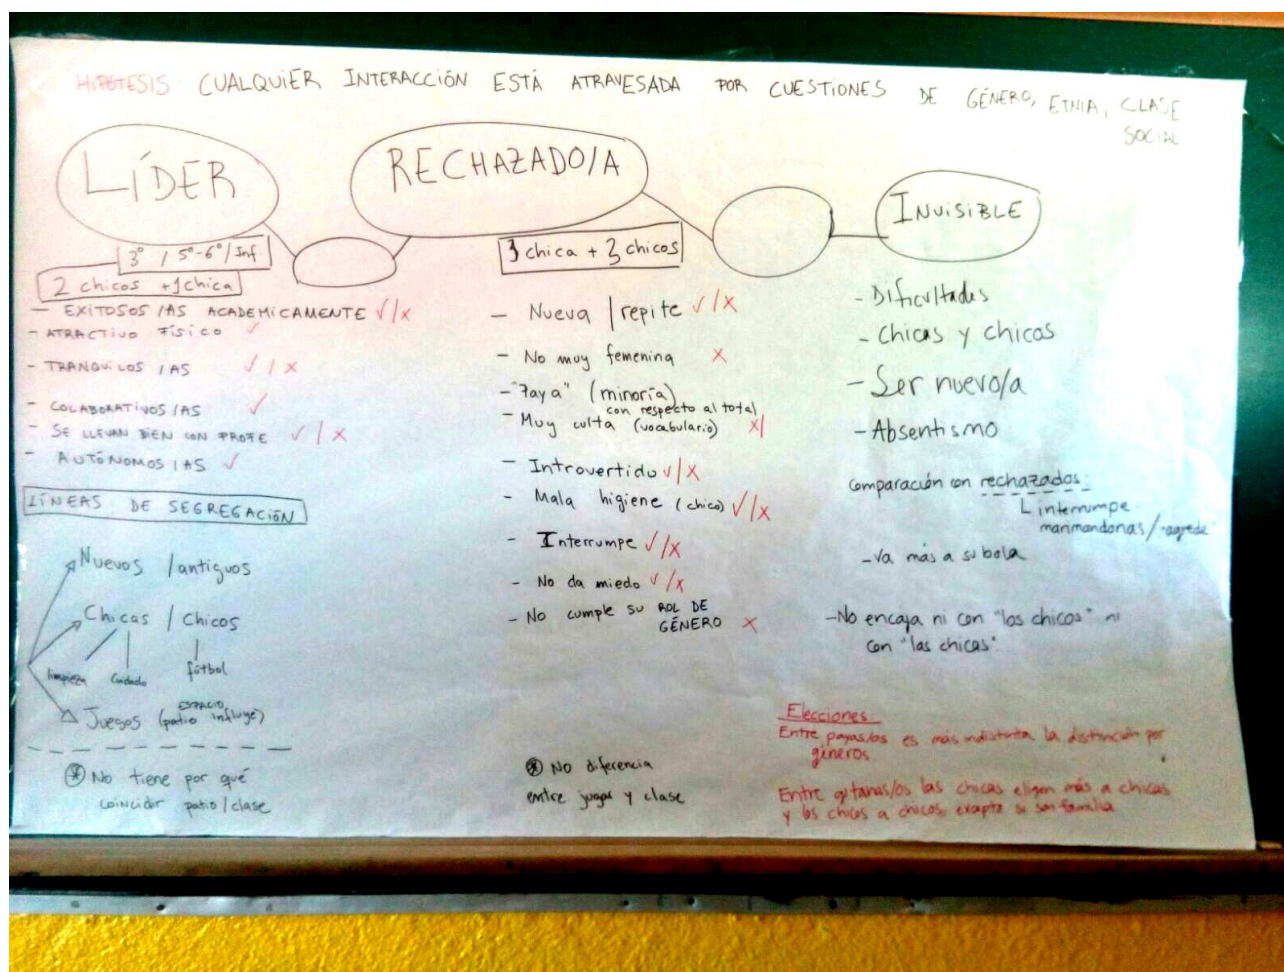 HIPÓTESIS CUALQUIER INTERACCIÓN ESTÁ ATRAVESADA POR CUESTIONES DE GÉNERO, ETNIA, CLASE
SOCIAL
LÍDER
3º / 5º-6º / Inf
2 chicos + 1 chica
- EXITOSOS/AS ACADEMICAMENTE ✓/x
- ATRACTIVO FÍSICO ✓
- TRANQUILOS/AS ✓/x
- COLABORATIVOS/AS ✓
- SE LLEVAN BIEN CON PROFE ✓/x
- AUTÓNOMOS/AS ✓
LÍNEAS DE SEGREGACIÓN
Nuevos / antiguos
Chicas / Chicos
limpieza cuidado fútbol
ESPACIO
Juegos (patio influye)
* No tiene por qué
coincidir patio/clase
RECHAZADO/A
3 chica + 3 chicos
- Nueva / repite ✓/x
- No muy femenina x
- "Paya" (minoría)
con respecto al total
- Muy culta (vocabulario) x/
- Introvertido ✓/x
- Mala higiene (chico) ✓/x
- Interrumpe ✓/x
- No da miedo ✓/x
- No cumple su ROL DE
GÉNERO x
* NO diferencia
entre jugar y clase
INVISIBLE
- Dificultades
- Chicas y chicos
- Ser nuevo/a
- Absentismo
Comparación con rechazados:
interrumpe
marimandonas/
- Va más a su bola
- No encaja ni con "los chicos" ni
con "las chicas"
Elecciones
Entre payas/os es más indistinta la distinción por
géneros
Entre gitanas/os las chicas eligen más a chicas
y los chicos a chicos, excepto si son familia